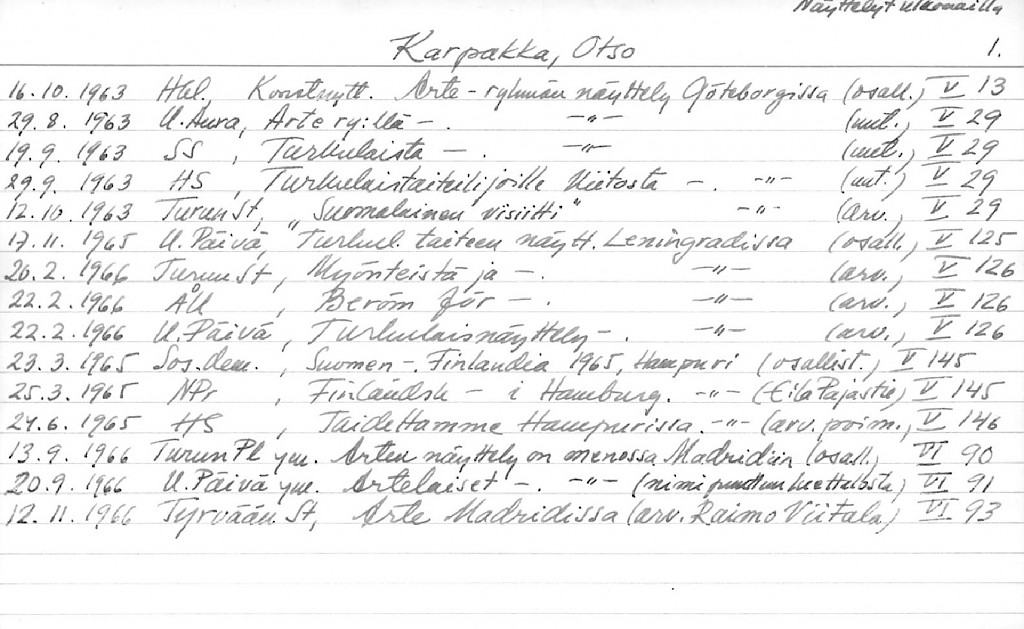 Näyttelyt ulkomailla
Karpakka, Otso 1.
16.10.1963 Hbl, Konstnytt. Arte-ryhmän näyttely Göteborgissa (osall.) V 13
29.8.1963 U.Aura, Arte ry:llä -. -"- (uut.) V 29
19.9.1963 SS, Turkulaista -. -"- (uut.) V 29
29.9.1963 HS, Turkulaistaiteilijoille kiitosta -. -"- (uut.) V 29
12.10.1963 Turun St, "Suomalainen visiitti" -"- (arv.) V 29
17.11.1965 U.Päivä, Turkul. taiteen näytt. Leningradissa (osall.) V 125
20.2.1966 Turun St, Myönteistä ja -. -"- (arv.) V 126
22.2.1966 ÅU, Beröm för -. -"- (arv.) V 126
22.2.1966 U.Päivä, Turkulaisnäyttely -. -"- (arv.) V 126
23.3.1965 Sos.dem., Suomen -. Finlandia 1965, Hampuri (osallist.) V 145
25.3.1965 NPr, Finländsk - i Hamburg. -"- (Eila Pajastie) V 145
24.6.1965 HS, Taidettamme Hampurissa. -"- (arv. poim.) V 146
13.9.1966 Turun Pl ym. Arten näyttely on menossa Madridiin (osall.) VI 90
20.9.1966 U.Päivä ym. Artelaiset -. -"- (nimi puuttuu luettelosta) VI 91
12.11.1966 Tyrvään St, Arte Madridissa (arv. Raimo Viitala) VI 93